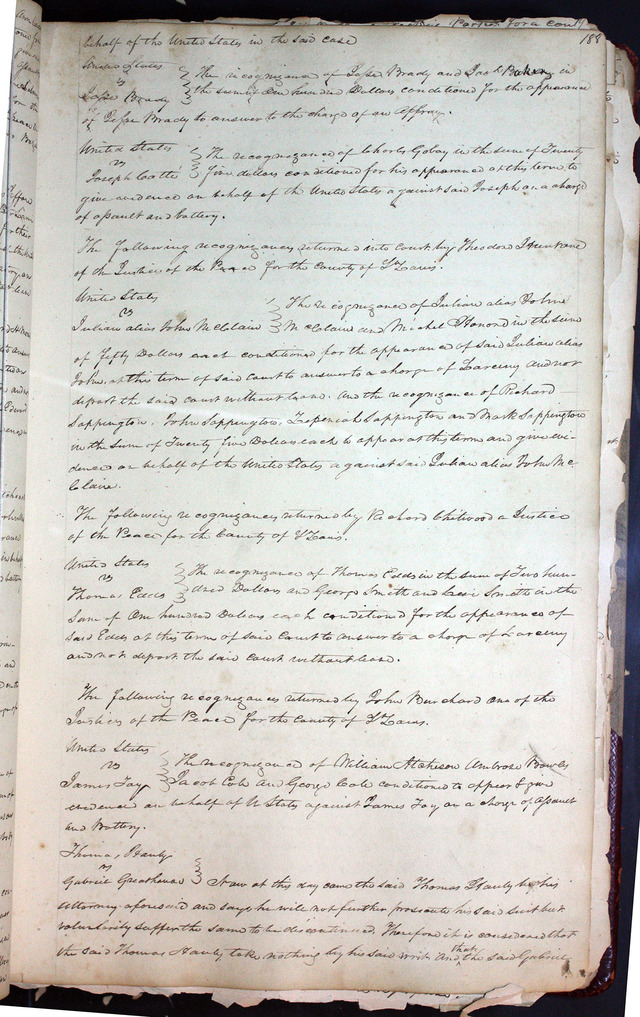 188
behalf of the United States in the said case
United States
vs
Jesse Brady
The recognizance of Jesse Brady and Baker in
the sum of One hundred Dollars conditioned for the appearance
of Jesse Brady to answer to the charge of an Affray.
United States
vs
Joseph
The recognizance of Gobay in the sum of Twenty
Five dollars conditioned for his appearance at this term to
give evidence on behalf of the United States against said Joseph on a charge
of assault and battery.
The Following recognizances returned into Court by Theodore Hunt one
of the Justices of the Peace for the County of St Louis.
United States
vs
Julian alias John McClaine
The recognizance of Julian alias John
McClaine and Michel Honore in the sum
of Fifty Dollars each conditioned for the appearance of said Julian alias
John, at this term of said court to answer to a charge of Larceny and not
depart the said court without leave. And the recognizance of Richard
Sappington, John Sappington, Zepeniah Sappington and Mark Sappington
in the sum of Twenty five Dollars each to appear at this term and give evi-
dence on behalf of the United States against said Julian alias John Mc
Claine.
The following recognizances returned by Richard Chitwood a Justice
of the Peace for the County of St Louis.
United States
vs
Thomas Edds
The recognizance of Thomas Edds in the sum of Two hun-
dred Dollars and George Smith and Smith in the
Sum of One hundred Dollars each conditioned for the appearance of
said Edds at this term of said Court to answer to a charge of Larceny
and not depart the said court without leave.
The following recognizances returned by John Burchard one of the
Justices of the Peace for the County of St Louis.
United States
vs
James Fay
The recognizance of William Atcheson Ambrose Bowles
Jacob Cole and George Cole conditioned to appear & give
evidence on behalf of U States against James Fay on a charge of Assault
and Battery.
Thomas Hanly
vs
Gabriel Greathouse
Now at this day came the said Thomas Hanly by his
attorney aforesaid and says he will not further prosecute his said suit but
voluntarily suffers the same to be discontinued. Therefore it is considered that
the said Thomas Hanly take nothing by his said writ and that the said Gabriel